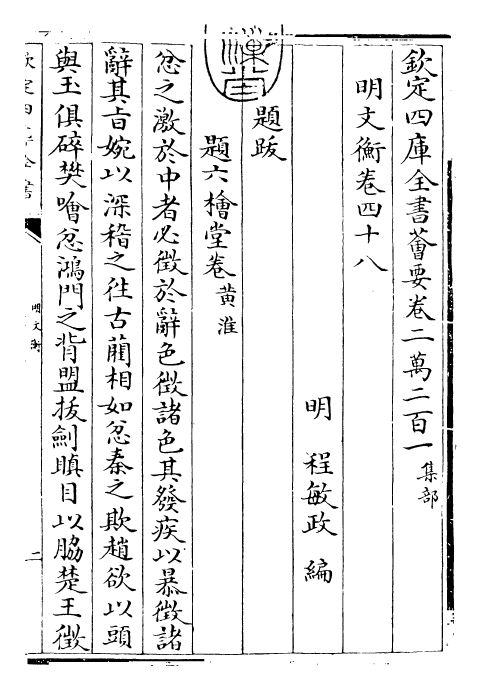 欽定四庫全書薈要卷二萬二百一 集部
明文衡卷四十八
明 程敏政 編
題跋
題六檜堂卷 黄淮
忿之激於中者必徵於辭色徵諸色其發疾以暴徵諸
辭其旨婉以深稽之往古藺相如忿秦之欺趙欲以頭
與玉俱碎樊噲忿鴻門之背盟拔劍瞋目以脇楚王徵
欽定四庫全書
明文衡